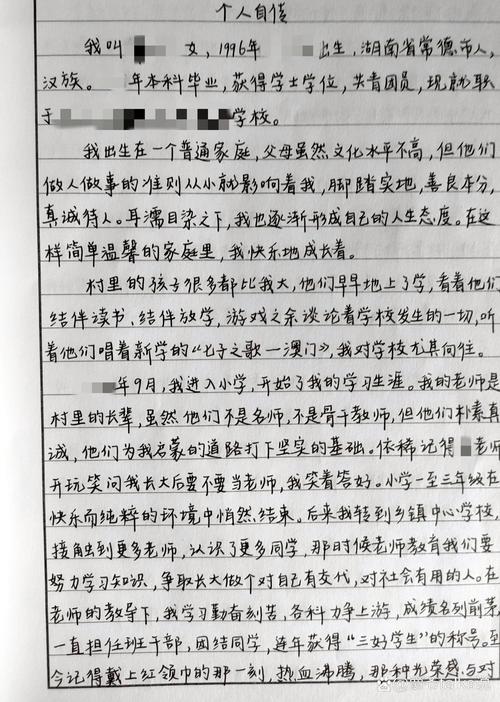 个人自传
我叫 女，1996年 出生，湖南省常德市人，
汉族。 年本科毕业，获得学士学位，共青团员，现就职
于 学校。
我出生在一个普通家庭，父母虽然文化水平不高，但他们
做人做事的准则从小就影响着我，脚踏实地，善良本分，
真诚待人。耳濡目染之下，我也逐渐形成自己的人生态度。在这
样简单温馨的家庭里，我快乐地成长着。
村里的孩子很多都比我大，他们早早地上了学，看着他们
结伴读书、结伴放学，游戏之余谈论着学校发生的一切，听
着他们唱着新学的“七子之歌—澳门》，我对学校尤其向往。
年9月，我进入小学，开始了我的学习生涯。我的老师是
村里的长辈，虽然他们不是名师，不是骨干教师，但他们朴素真
诚，他们为我启蒙的道路打下坚实的基础。依稀记得 老师
开玩笑问我长大后要不要当老师，我笑着答好。小学一至三年级在
快乐而纯粹的环境中悄然结束。后来我转到乡镇中心学校，
接触到更多老师，认识了更多同学，那时候老师教育我们要
努力学习知识，争取长大做个对自己有交代，对社会有用的人。在
老师的教导下，我学习勤奋刻苦，各科力争上游，成绩名列前茅，
一直担任班干部，团结同学，连年获得“三好学生”的称号。至
今记得戴上红领巾的那一刻，热血沸腾，那种光荣感与对